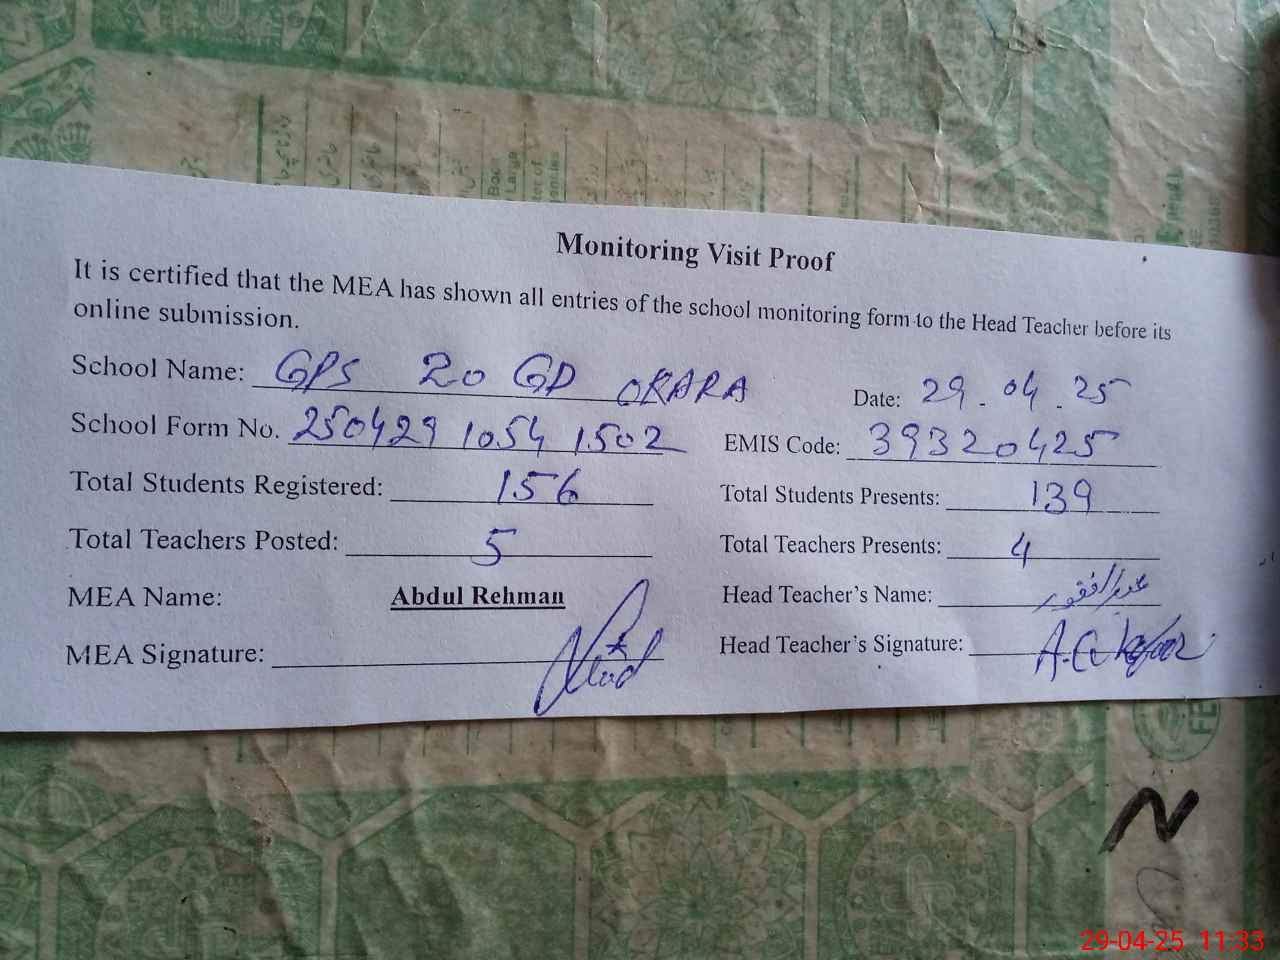 Monitoring Visit Proof
It is certified that the MEA has shown all entries of the school monitoring form to the Head Teacher before its
online submission.
School Name: GPS 20 GD OKARA Date: 29.04.25
School Form No. 250429 1054 1502 EMIS Code: 39320425
Total Students Registered: 156 Total Students Presents: 139
Total Teachers Posted: 5 Total Teachers Presents: 4
MEA Name: Abdul Rehman Head Teacher's Name: عبدالغفور
MEA Signature: Head Teacher's Signature: A. Ghafoor
N
29-04-25 11:33